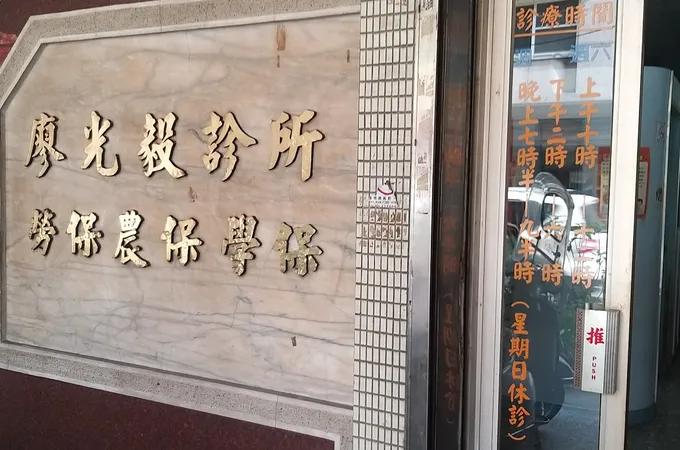 廖光毅診所
勞保農保學保
診療時間
週 六
上午十時 十二時
下午二時 六時
晚上七時半 九半時(星期日休診)
推
PUSH